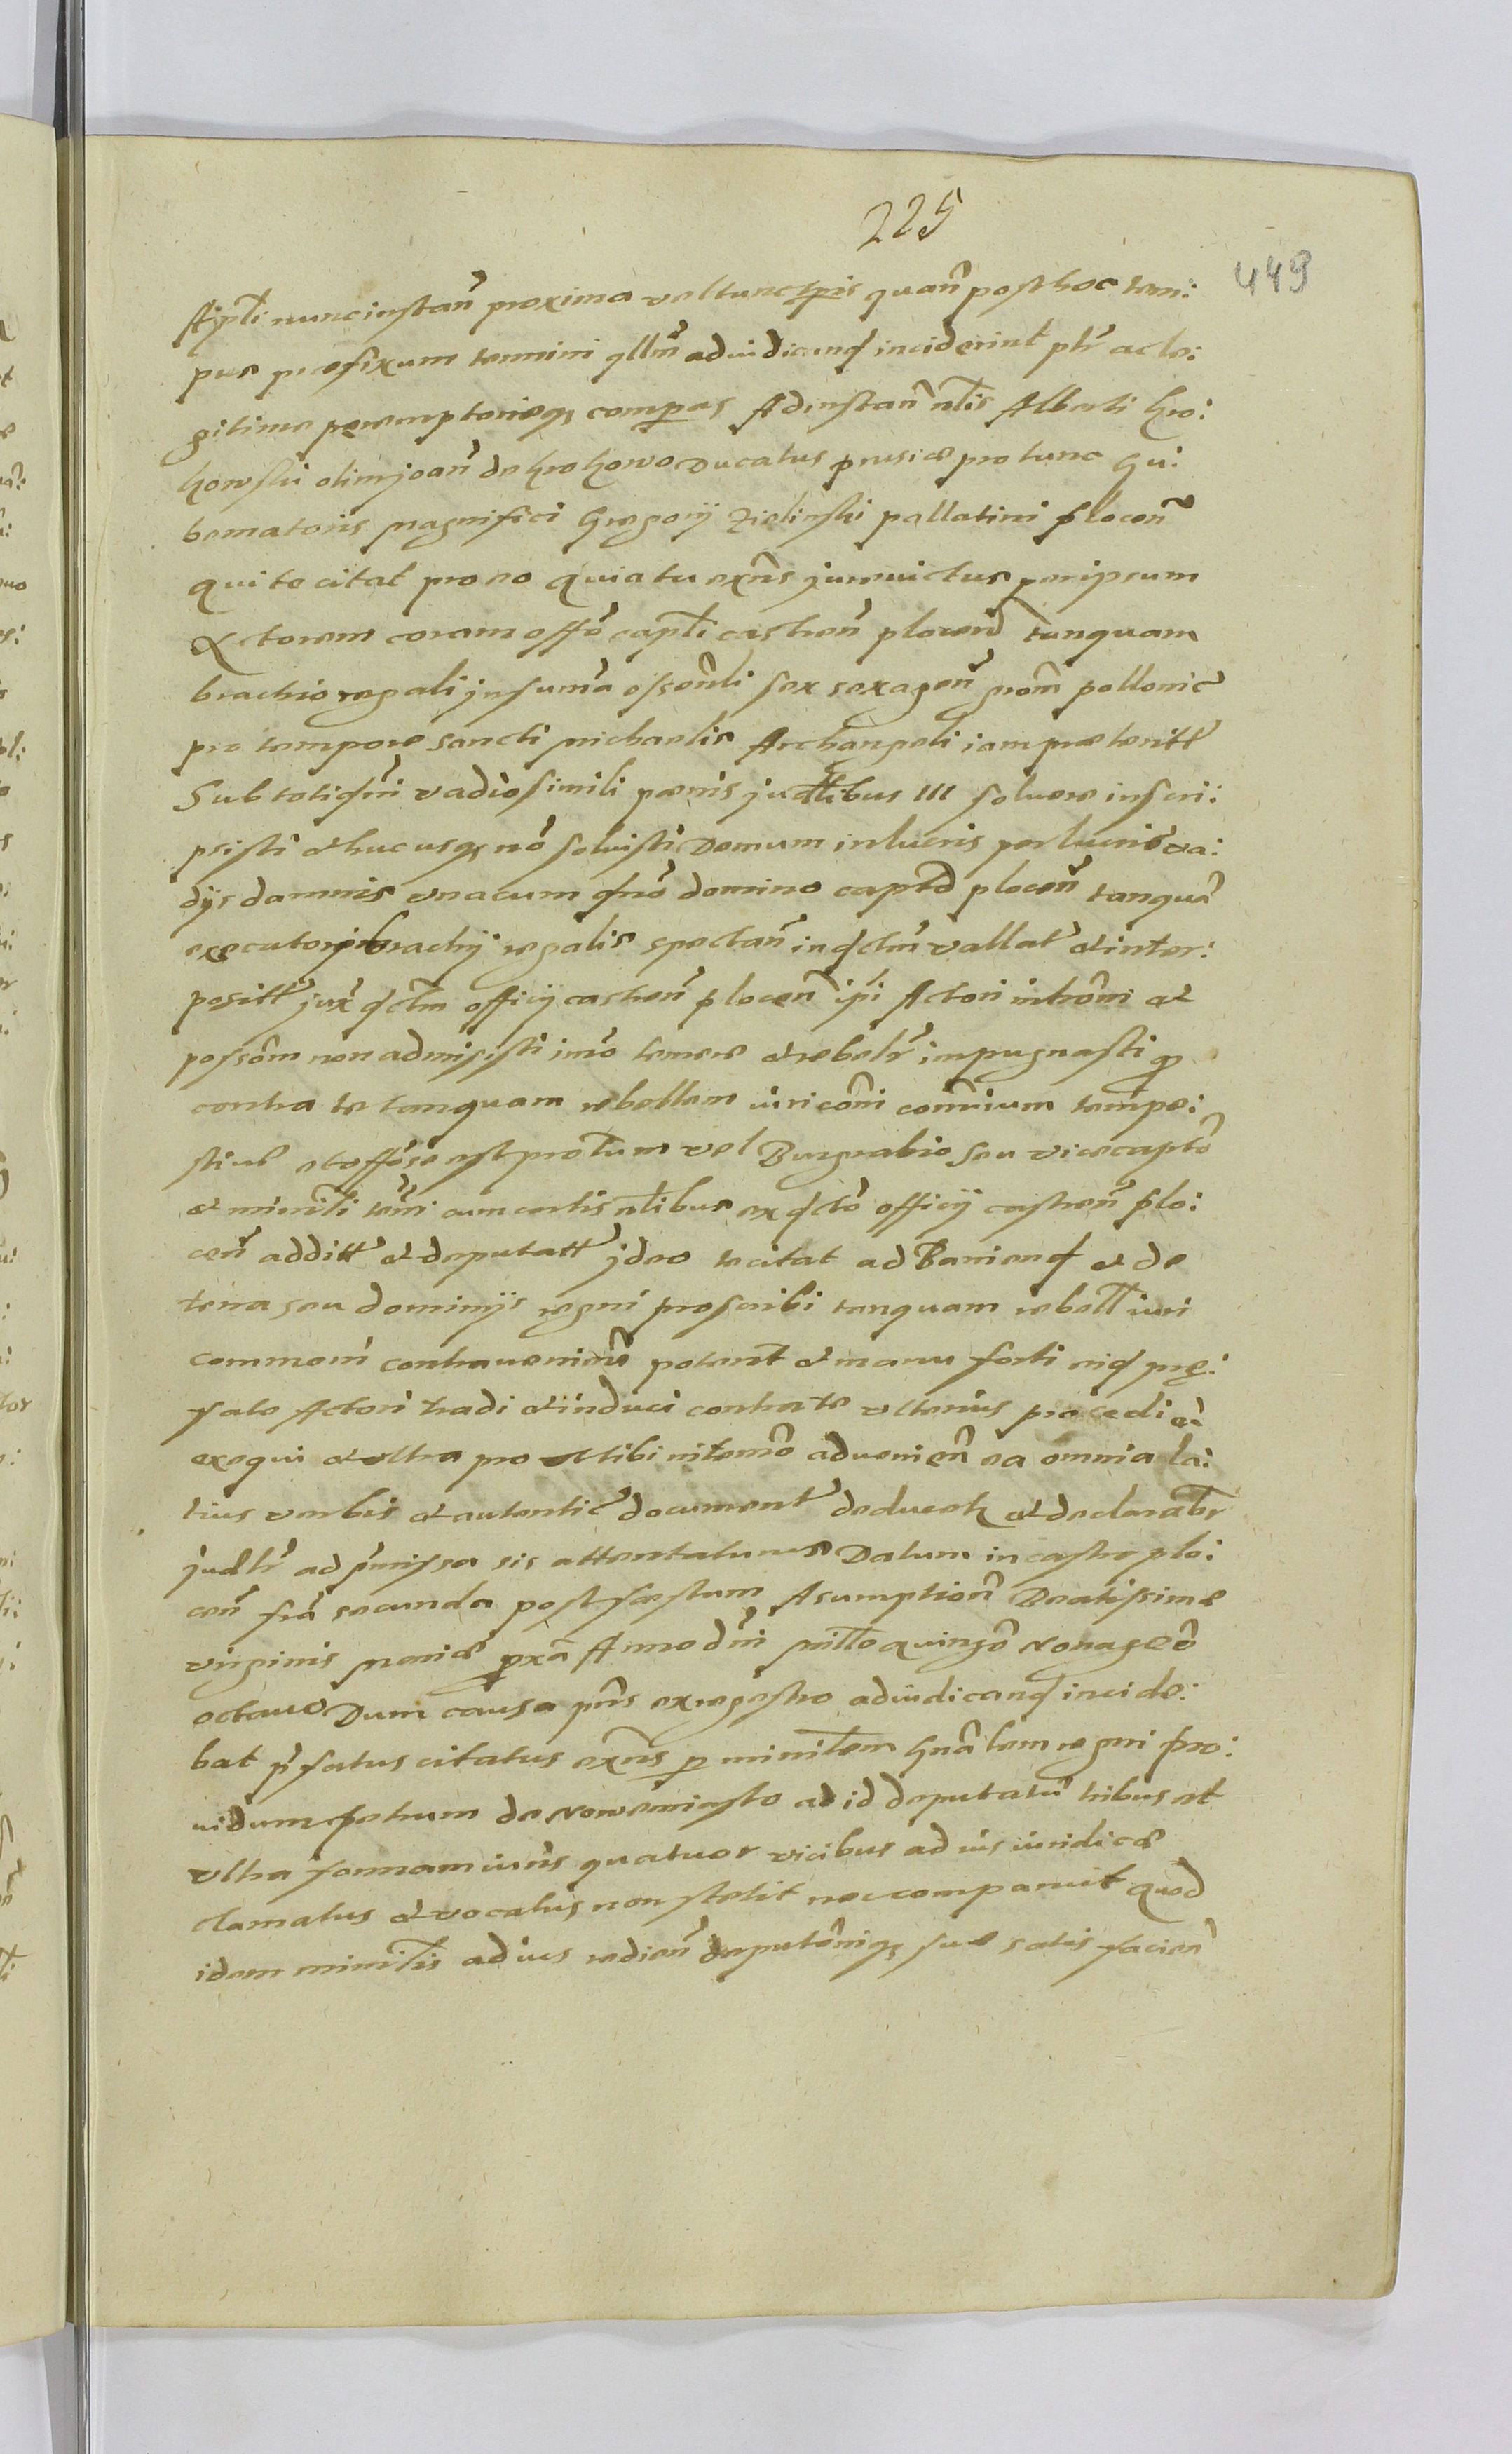 225
449
Apli nunc instan proxima vel tunc tpis quan post hoc tem:
pus prefixum termini qllm adiudicand inciderint pltr ac le:
gitime peremptorieq compeas Ad instan nlis Alberti Kro:
kowski olim Joan de Krokowo Ducatus prusiae pro tunc Gu:
bernatoris Magnifici Gregorij Zielinski pallatini plocen
qui te citat pro eo quia tu exns jurevictus per ipsum
Actorem coram offo capli castren plocen tanquam
brachio regali in suma essenli sex sexagen grom pollonic
pro tempore sancti Michaelis Archangeli iam praeteritt
Sub totiqm vadio simili poenis judlibus III soluere inscri:
psisti et hucusq no soluisti Demum in lucris perlucris va:
dys damnis vna cum gnro domino capto plocen tanqua
executorj brachij regalis spectan in dctm vallat et inter:
positt jux dctm officij castren plocen ipi Actori introm et
possom non admisisti imo temere et rebelr impugnasti q
contra te tanquam rebellem iuri comi comunium tempe:
stiue et offose est protum vel Burgrabio seu vicecapto
et minrli tri cum certis nlibus ex dcto officij castren plo:
cen additt et deputatt jdeo te citat ad Baniend et de
terra seu dominijs regni proscribi tanquam rebell iuri
communi contrauenient potent et manu forti eiq pre:
fato Actori tradi et induci contra te vlterius procedi et
exequi et vltra pro vt tibi in termo aduenien ea omnia la:
tius verbis et autentic document deducetz et declarabr
judlr ad pmissa sis attentaturus Datum in castro plo:
cen fria secunda post festum Asumption Beatissimae
virginis Mariae pxa Anno dni Millo quingo Nonageo
octauo Dum causa pns ex regestro adiudicand incide:
bat pfatus citatus exns p minirlem gnralem regni pro:
uidum petrum de Nowemiasto ad id deputatu tribus et
vltra formam iuris quatuor vicibus ad ius iuridicae
clamatus et vocatus non stetit nec comparuit quod
idem minirlis ad ius redien deputoniq suae satis facien